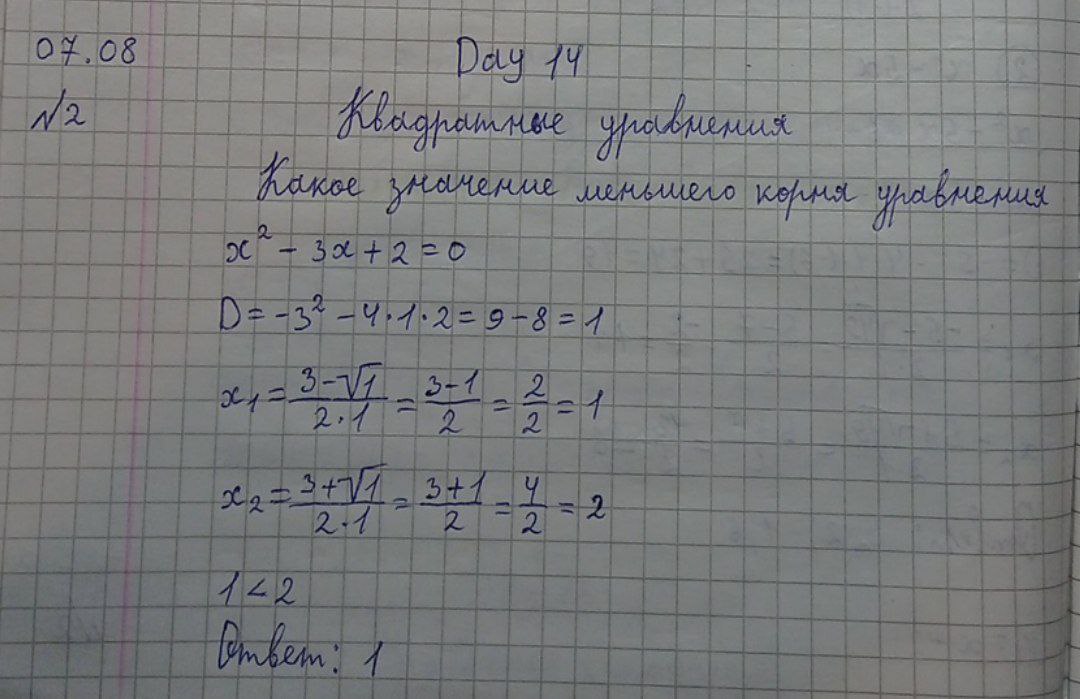 07.08
Day 14
№2
Квадратные уравнения
Какое значение меньшего корня уравнения
x² - 3x + 2 = 0
D = -3² - 4·1·2 = 9 - 8 = 1
x₁ = (3-√1)/(2·1) = (3-1)/2 = 2/2 = 1
x₂ = (3+√1)/(2·1) = (3+1)/2 = 4/2 = 2
1 < 2
Ответ: 1